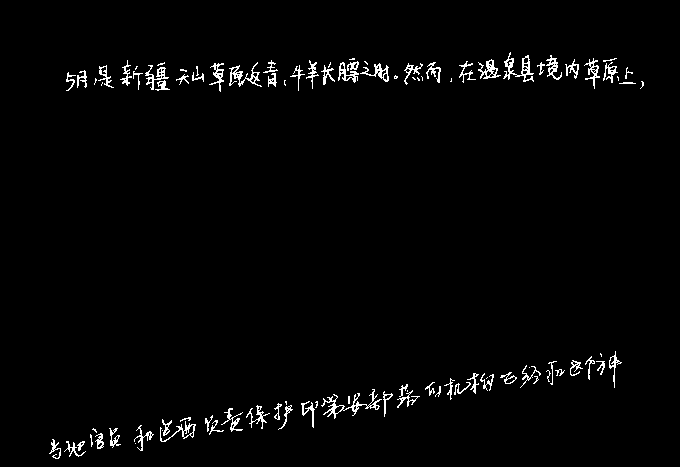 5月是新疆天山草原返青、牛羊长膘之时。然而,在温泉县境内草原上,
当地官员和巴西负责保护印第安部落的机构已经和这个部